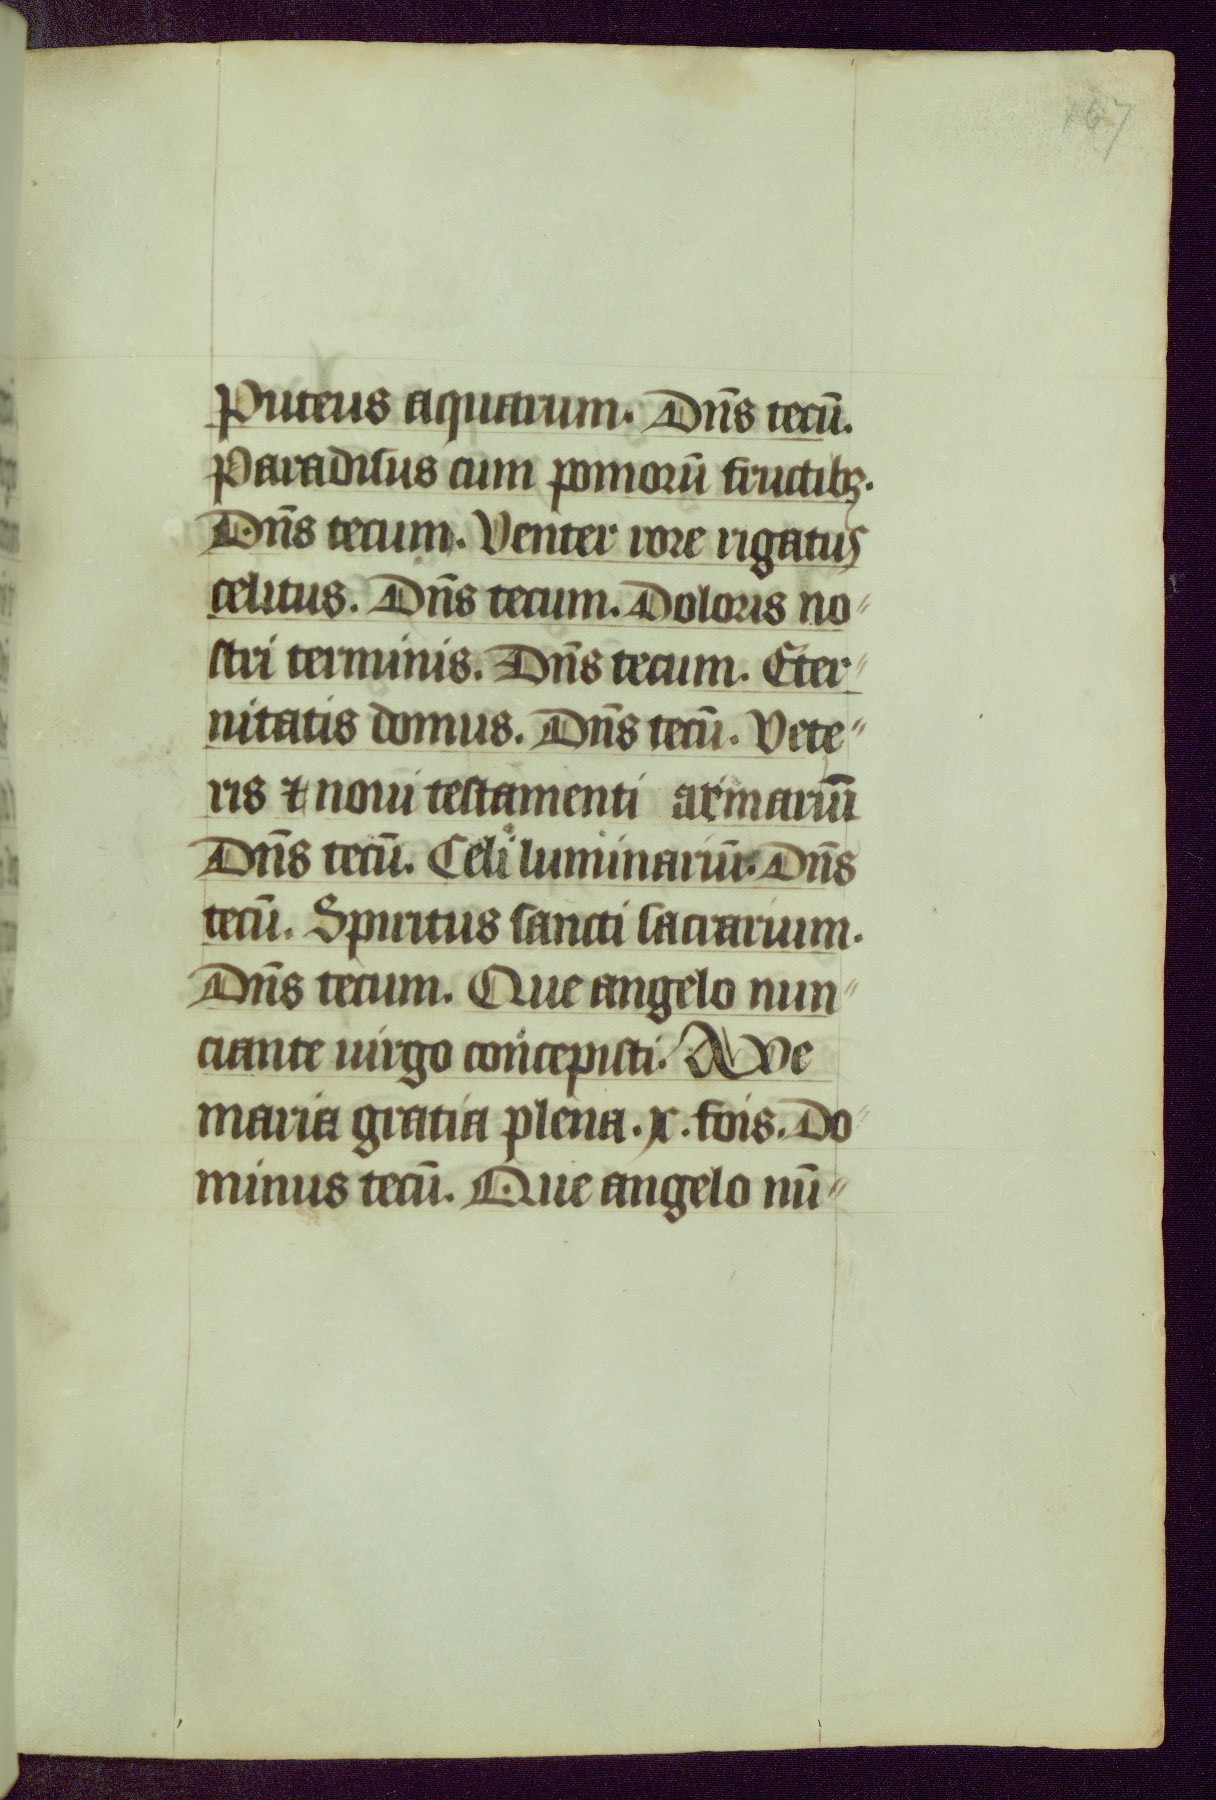 167
Puteus aquarum. Dn̄s tecū.
Paradisus cum pomorū fructibꝫ.
Dn̄s tecum. Venter rore rigatus
celitus. Dn̄s tecum. Doloris no〃
stri terminis. Dn̄s tecum. Eter〃
nitatis domus. Dn̄s tecū. Vete〃
ris ⁊ noui testamenti armariū
Dn̄s tecū. Celi luminariū. Dn̄s
tecū. Spiritus sancti sacrarium.
Dn̄s tecum. Que angelo nun〃
ciante uirgo concepisti. Ave
maria gratia plena. x. fois. Do〃
minus tecū. Que angelo nū〃